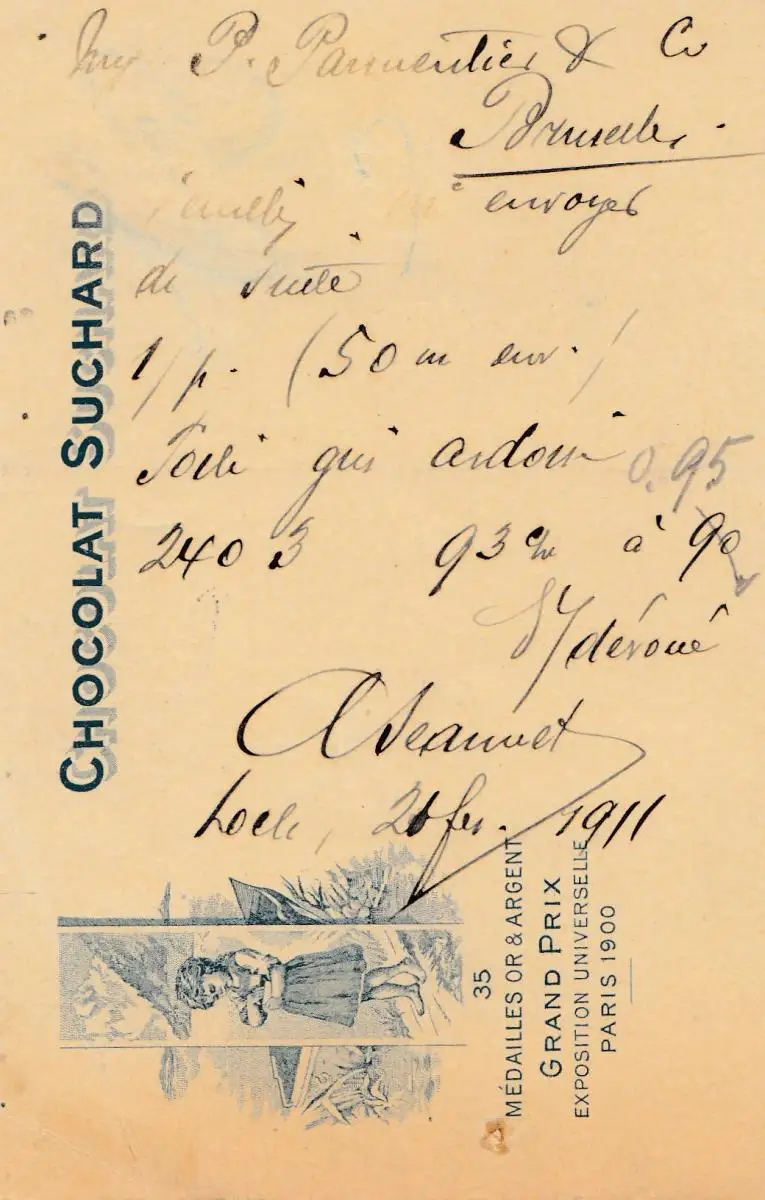 P. Parmentier & Co
Bruxelles.
Veuillez m'envoyer
de suite
1/p. (50 m env.)
Toile gris ardoise 0.95
2403 93 cm à 90
dévoué
Locle, fev. 1911
CHOCOLAT SUCHARD
35
MÉDAILLES OR & ARGENT
GRAND PRIX
EXPOSITION UNIVERSELLE
PARIS 1900